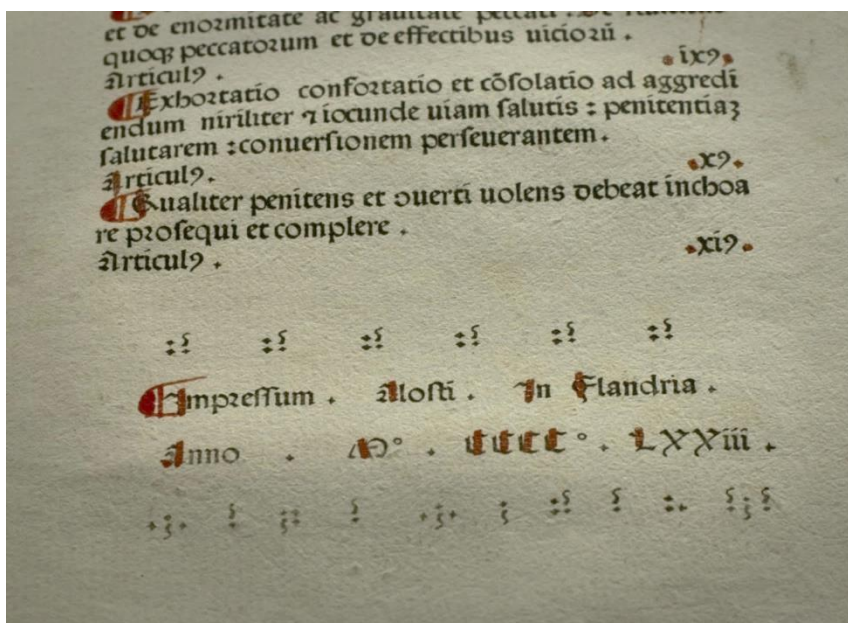 et de enormitate ac grauitate peccati
quoqꝫ peccatorum et de effectibus uiciorū .
Articulꝯ . .ixꝯ.
Exhortatio confortatio et cōsolatio ad aggredi
endum niriliter ⁊ iocunde uiam salutis : penitentiaꝫ
salutarem : conuersionem perseuerantem .
Articulꝯ . .xꝯ.
Qualiter penitens et ꝯuerti uolens debeat inchoa
re prosequi et complere .
Articulꝯ . .xiꝯ.
Impressum . Alosti . In Flandria .
Anno . M° . CCCC° . LXXiii .